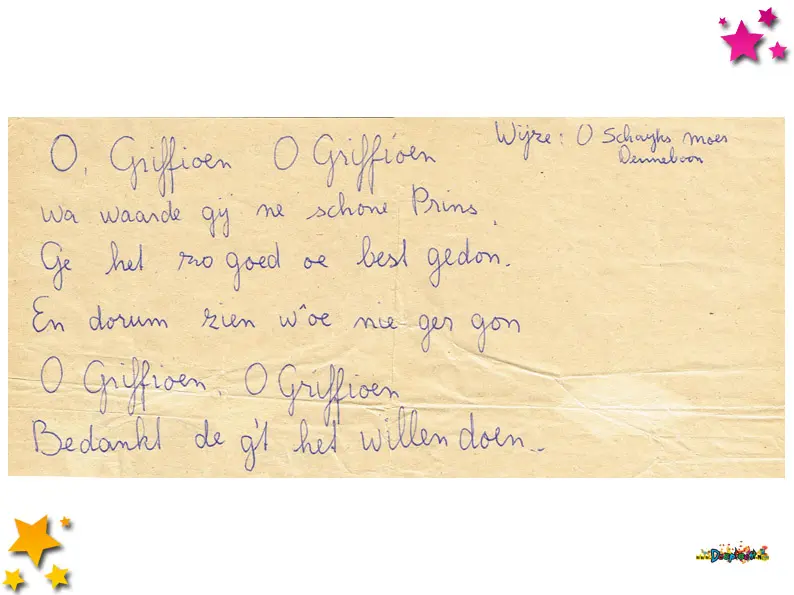 O, Griffioen O Griffioen
Wijze: O Schayks moes
Denneboon
wa waarde gij ne schone Prins
Ge het zo goed oe best gedon.
En dorum zien w^oe nie ger gon
O Griffioen, O Griffioen
Bedankt de g't het willen doen..